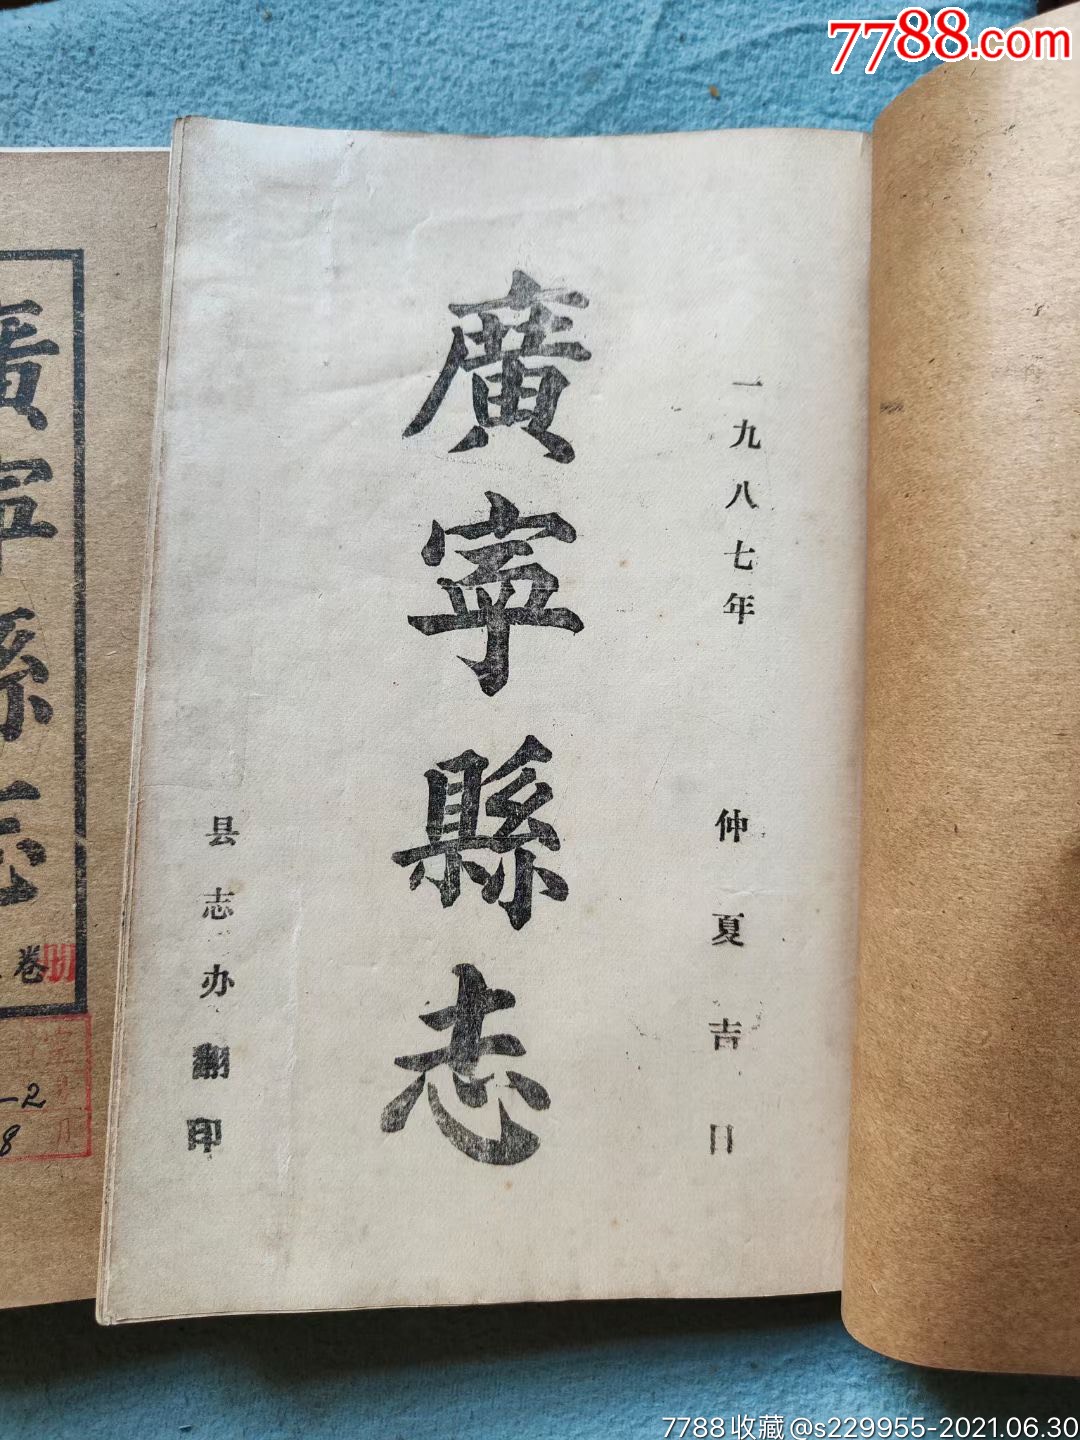 7788.com
一九八七年
仲夏吉日
廣寍縣志
县志办翻印
廣寍縣志
卷
-2
8
7788收藏@s229955-2021.06.30